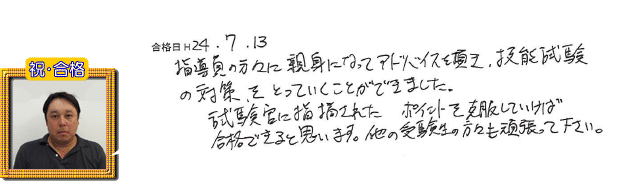 祝・合格
合格日 H24.7.13
指導員の方々に親身になってアドバイスを頂き、技能試験
の対策をとっていくことができました。
試験官に指摘された ポイントを克服していけば
合格できると思います。他の受験生の方々も頑張って下さい。